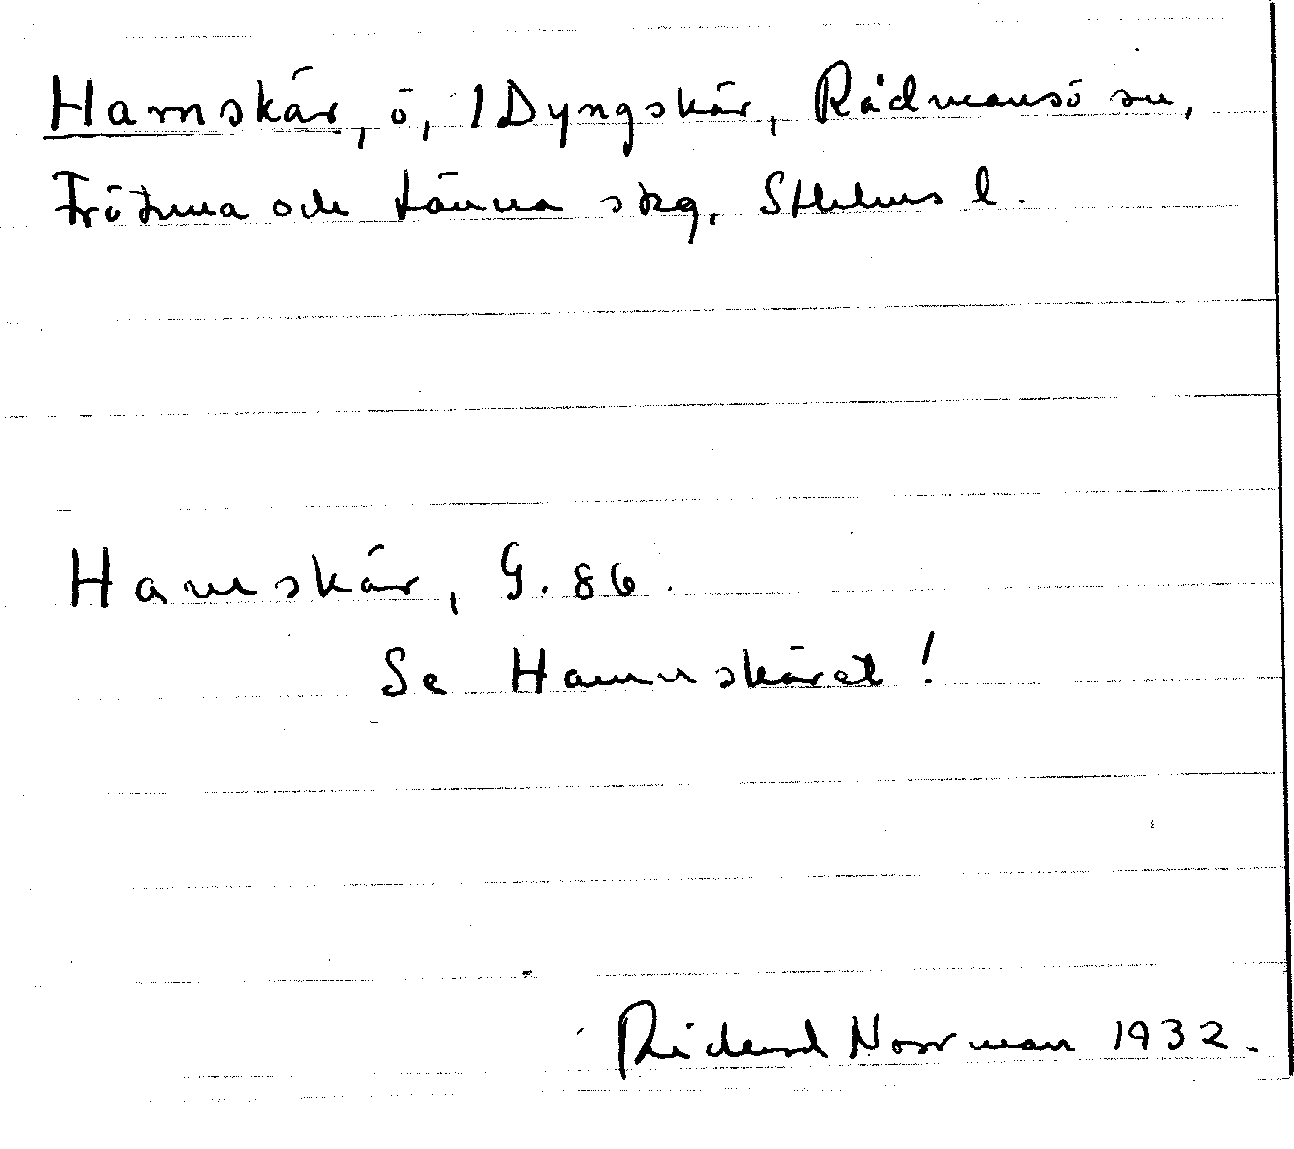 Hamnskär, ö, 1 Dyngskär, Rådmansö sn,
Frötuna och Länna skg, Sthlms l.
Hamskär, G. 86.
Se Hamnskäret!
Rickard Norrman 1932.